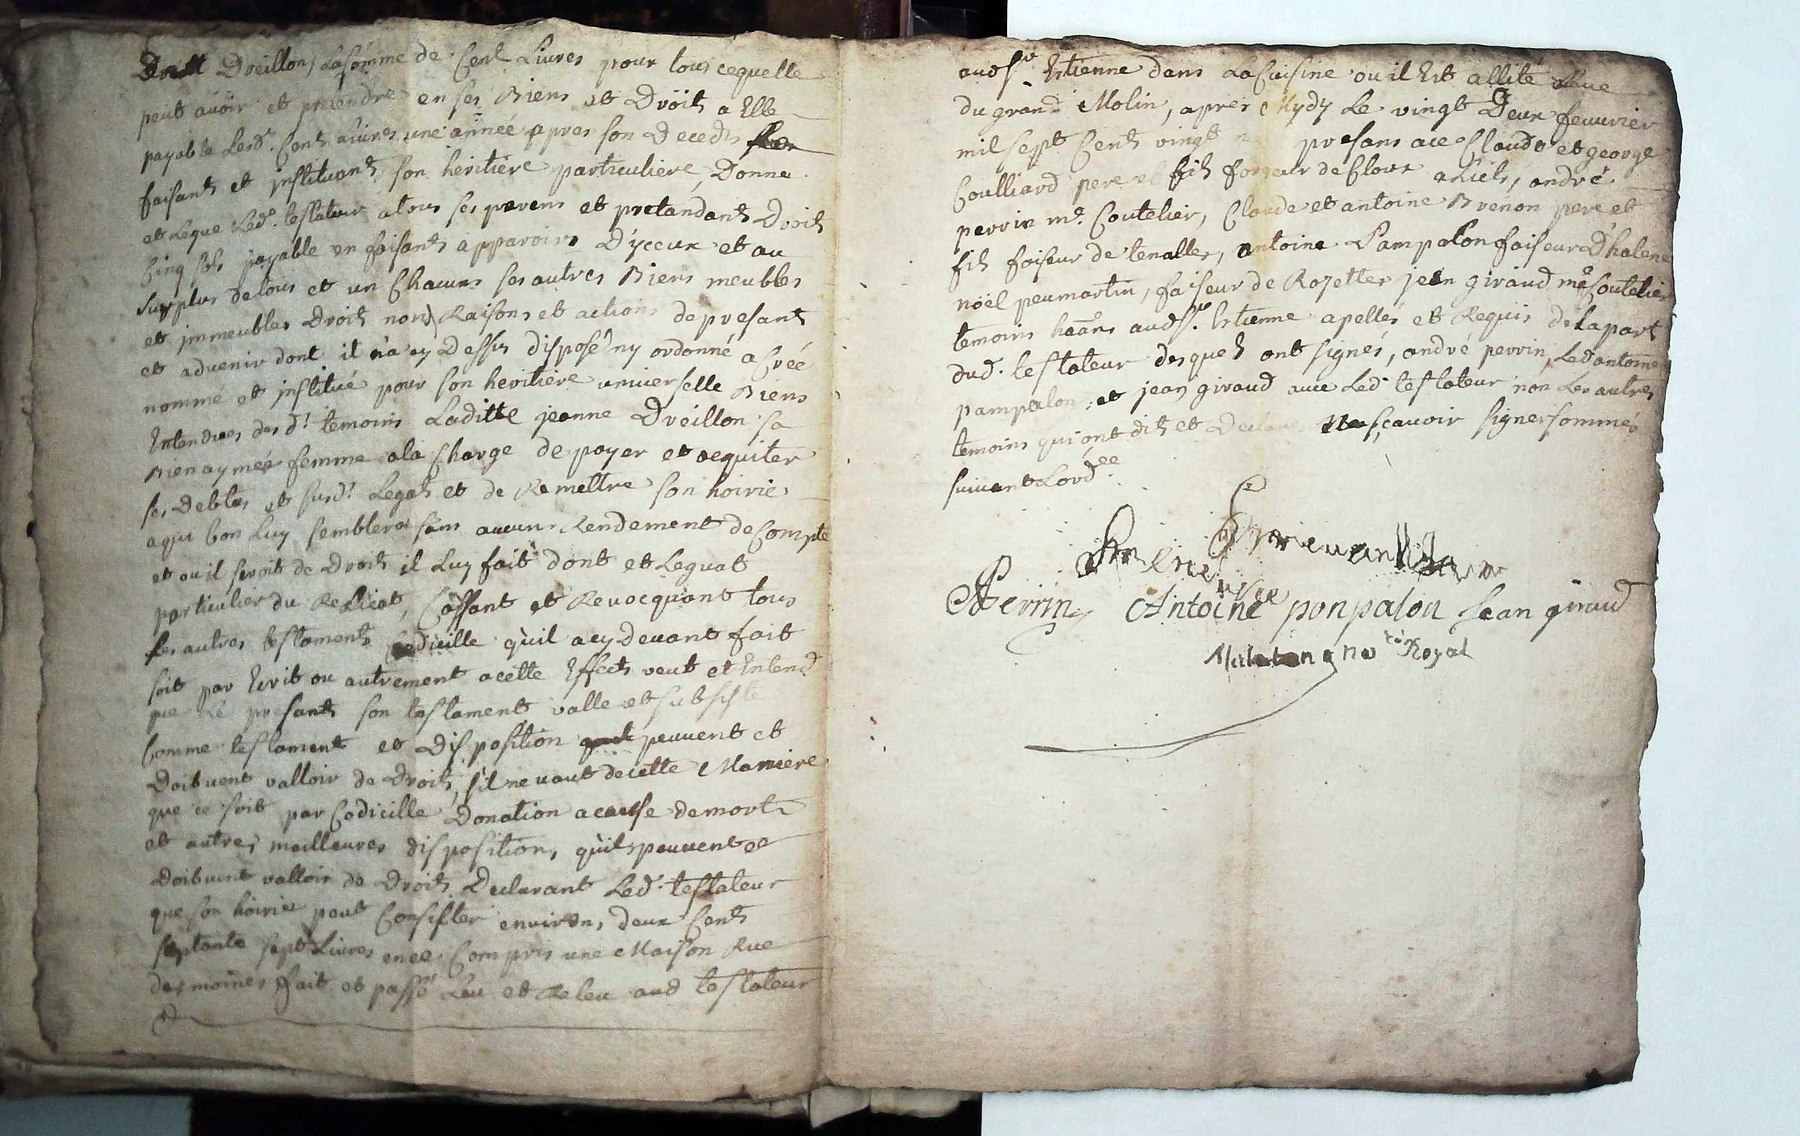 Dreillon, La somme de Cent Livres pour tous cequelle
peut avoir et pretendre en ses Biens et Droits a Elle
payable Lesd. Cent Livres une année apres son Decedz
faisant et jnstituant son heritiere particuliere, Donne
et Legue Led. testateur atous ses parens et pretandants Droits
Cinq sols payable en faisants apparoirs D'yceux et au
surplus detous et un Chacuns ses autres Biens meubles
et jmmeubles Droits noms Raisons et actions de presant
et advenir dont il n'a cy Dessus disposé ny ordonné a Créé
nommé et jnstitué pour son heritiere universelle Biens
Entendues desd. temoins Laditte jeanne Dreillon sa
Bienaymée femme ala Charge de payer et acquiter
ses Debtes et susd. Legats et de Remettre son hoirie
aqui bon Luy semblera sans aucuns Rendement de Compte
et ou il seroit de Droits il Luy fait dont et Leguat
particulier du Relicat, Cassant et Revocquant tous
ses autres testaments Codicille quil a cy Devant fait
soit par Ecrit ou autrement acette Effects veut et Entend
que Le presant son testament valle et subsiste
Comme testament et Disposition peuvent et
Doibvent valloir de Droits, s'il ne vaut decette Maniere
que ce soit par Codicille Donation acause demort
et autres meilleures disposition, qu'ils peuvent et
Doibvent valloir de Droits Declarant Led. testateur
que son hoirie peut Consister environ, deux Cents
septante sept Livres en ce Compris une Maison Rue
des moines fait et passé Leu et Releu aud testateur
audsr. Estienne dans La Cuisine ou il Est allité Rue
du grand Molin, apres Mydy Le vingt Deux fevvrier
mil sept Cents vingt presans ace Claude et george
Coulliard pere et fils forgeur de Cloux, andré
perrin me. Coutelier, Claude et antoine Brenon pere et
fils faiseur de tenalles, antoine Pampalon faiseur D'halene
noël peumartin, faiseur de Rozettes jean giraud me Coutelier
temoins audsr. Estienne apellés et Requis delapart
dud. testateur desquels ont signés, andré perrin, Led antoine
pampalon, et jean giraud avec Led. testateur non Les autres
temoins qui ont dits et Declaré Ne sçavoir signer sommés
suivant Lord.ce
Perrin Antoine ponpalon Jean giraud
Royal